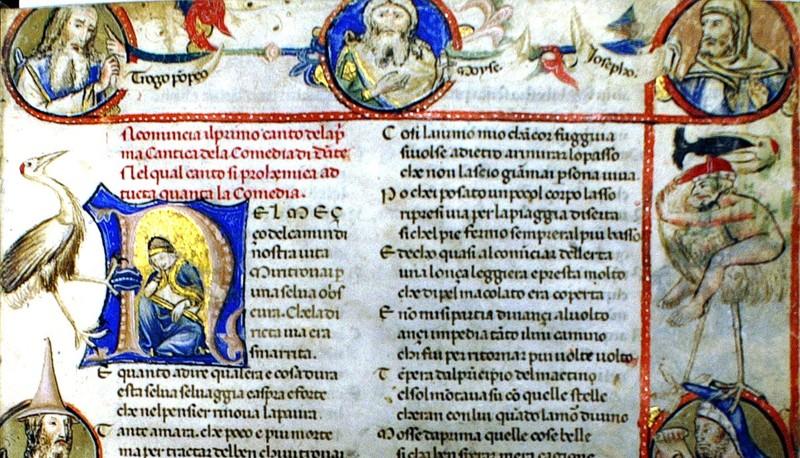 Trogo pōpeo
Moyse.
Iosepho.
Ncomincia il primo canto dela p̄
ma Cantica dela Comedia di dāte
Nel qual canto si prohemica ad
tucta quanta la Comedia.
NEL MEÇ
ço del camin di
nostra vita
Mi ritrovai p
una selva obs
cura. Che la di
ricta via era
smarrita.
E quanto a dire qual era e cosa dura
esta selva selvaggia e aspra e forte
che nel pensier rinova la paura.
Tante amara. che poco e piu morte
ma per tractar del ben chi vi trovai
Cosi lanimo mio chācor fuggiva
si volse adietro arimirar lo passo
che non lascio giāmai psona viva.
Po chei posato un poco l corpo lasso
ripresi via per la piaggia diserta
si chel pie fermo sempre ral piu basso
Et ecco quasi al cominciar dellerta
una lonça leggiera e presta molto
che di pel macolato era coperta
E nō mi si partia dināçi al volto
ançi impedia tāto il mi camino
chi fui per ritornar piu volte volto
Tēpera dal pncipio del maetino
el sol mōtava su cō quelle stelle
cheran con lui quādo lamor divino
Mosse da prima quelle cose belle
si cha ben sperar mera cagione